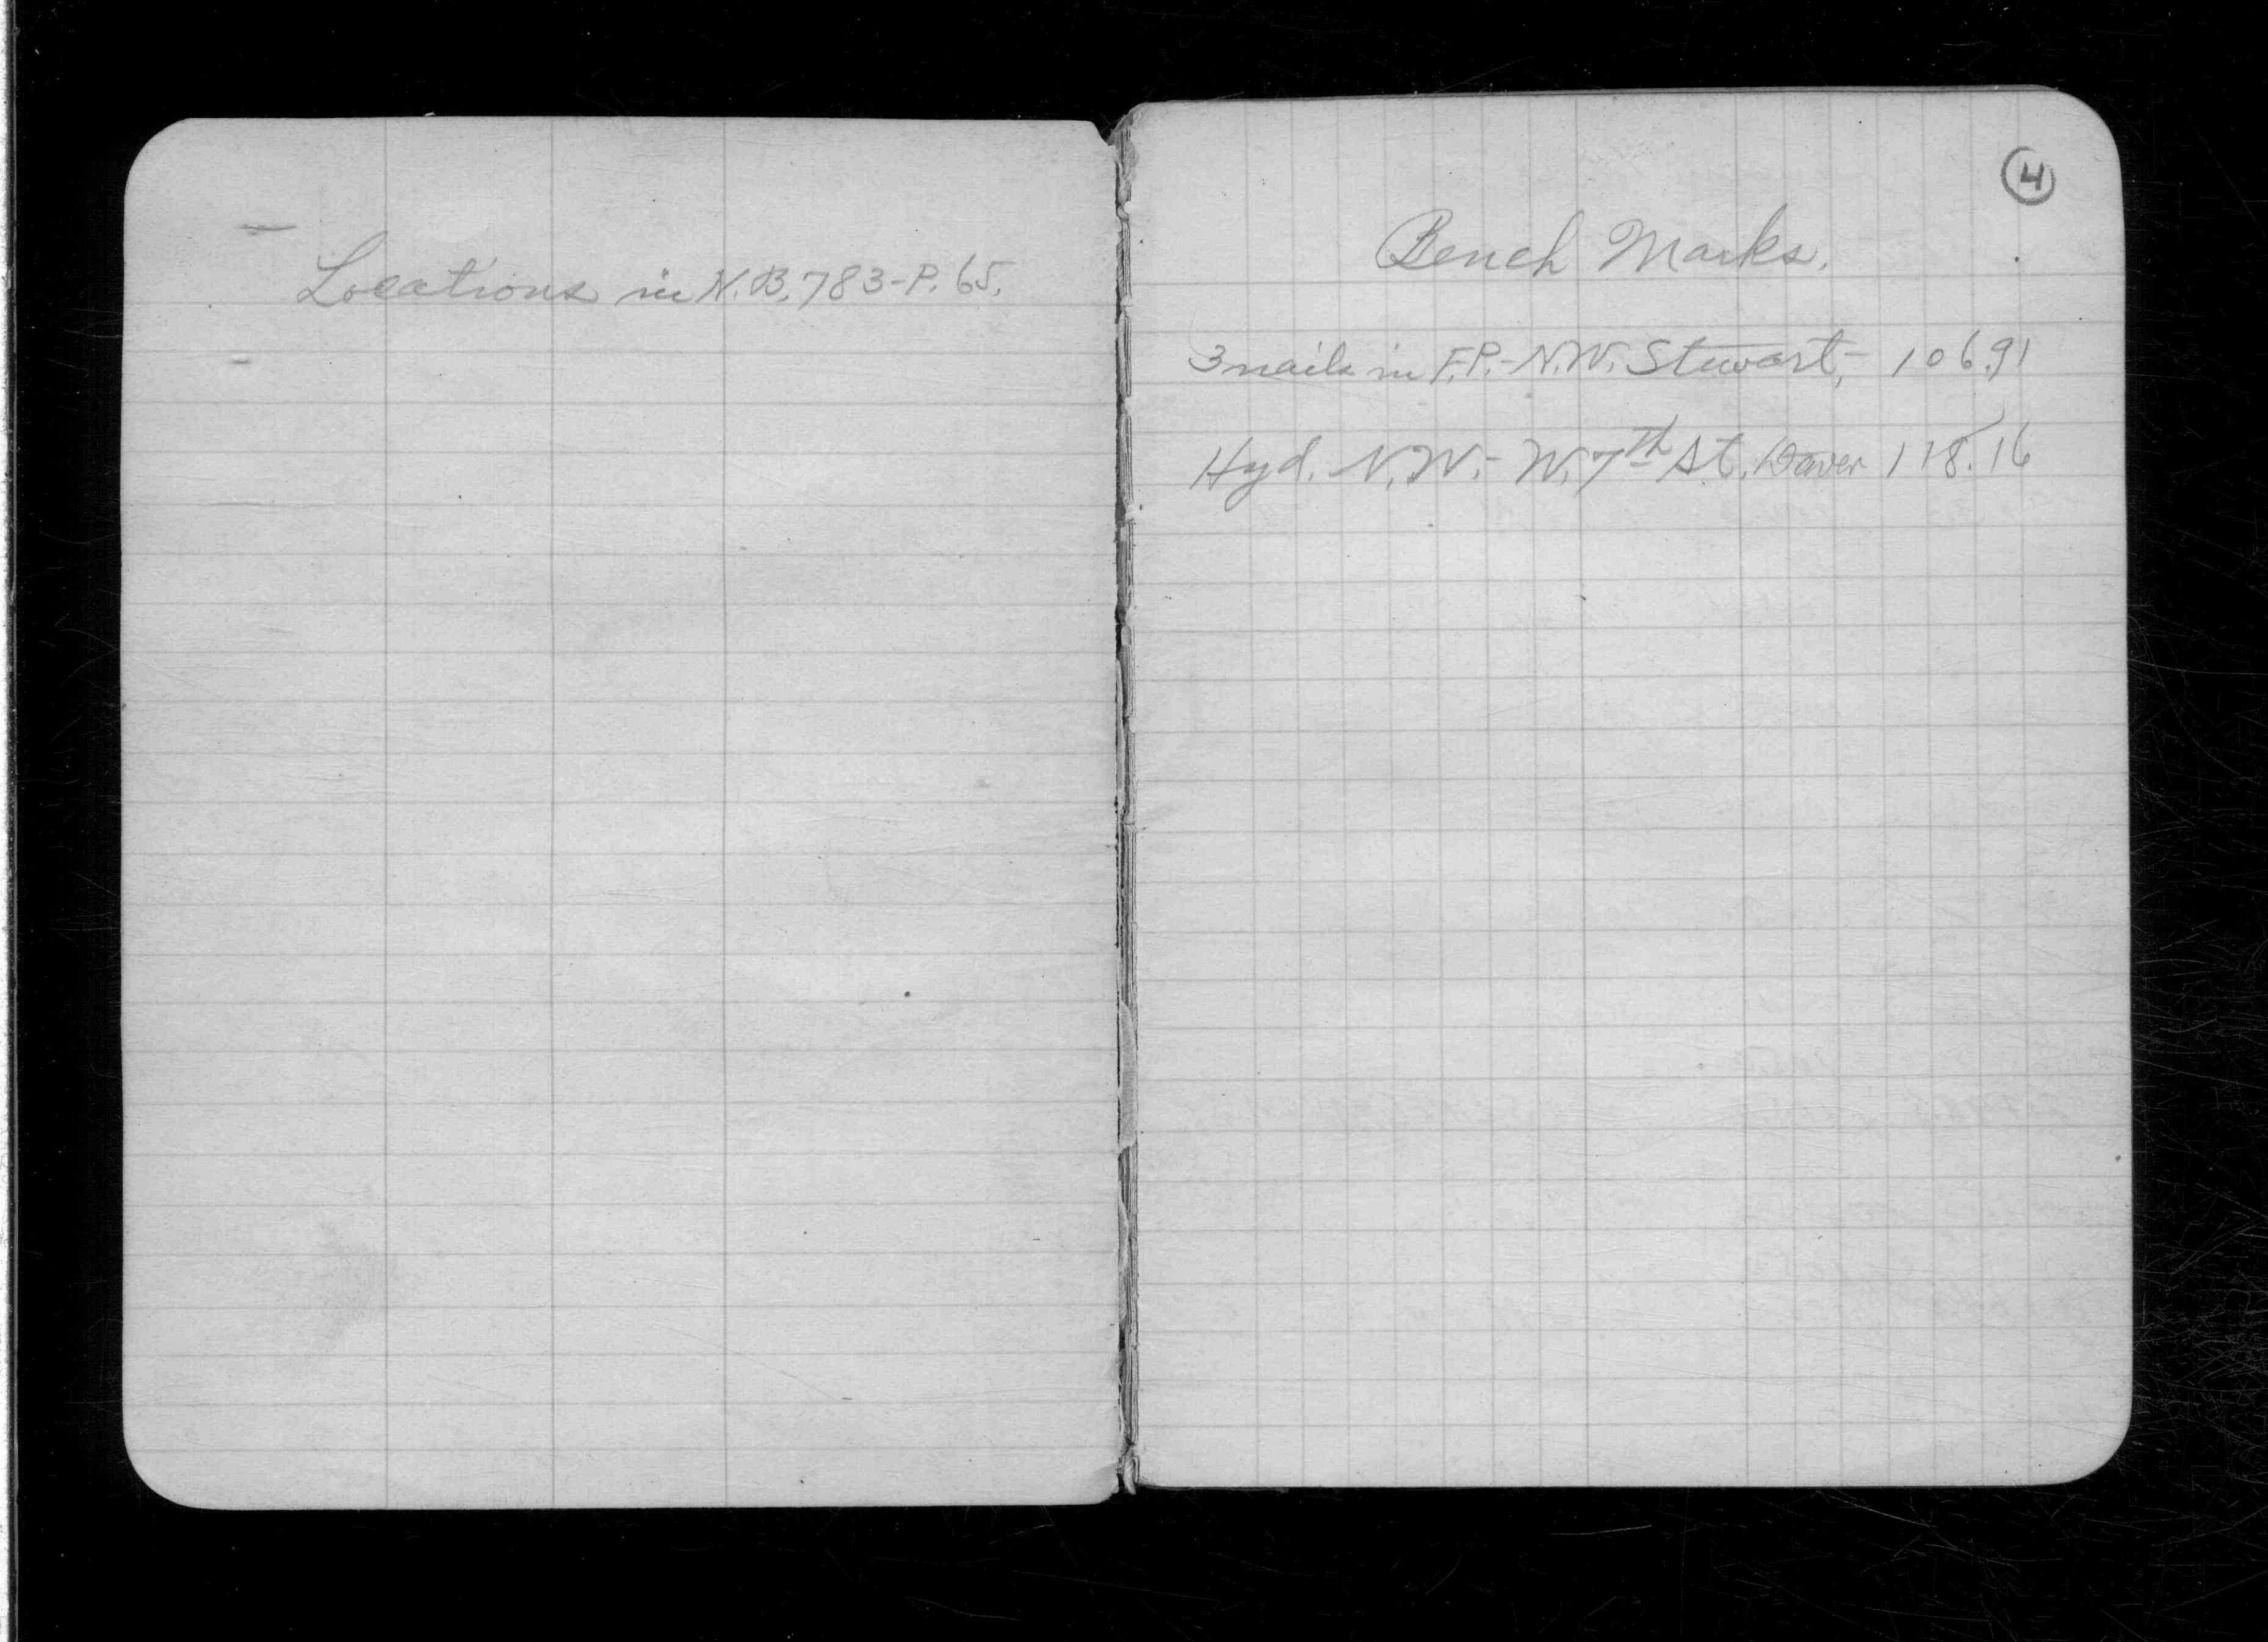 Locations in N.B. 783-P. 65.
4
Bench Marks.
3 nails in F.P.- N.W. Stewart,- 106.91
Hyd. N.W.- W. 7th St. Daver 118.16